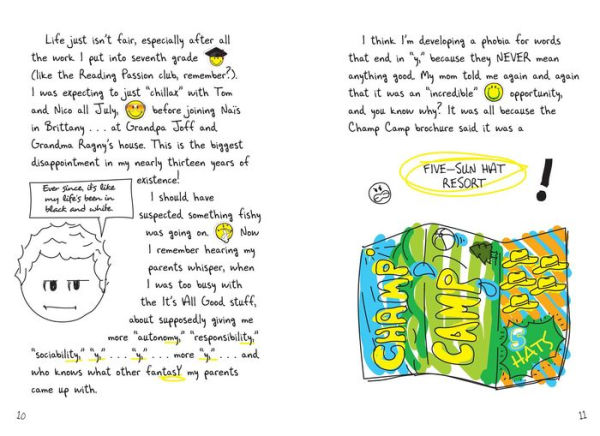 Life just isn't fair, especially after all
the work I put into seventh grade
(like the Reading Passion club, remember?).
I was expecting to just "chillax" with Tom
and Nico all July, before joining Naïs
in Brittany . . . at Grandpa Jeff and
Grandma Ragny's house. This is the biggest
disappointment in my nearly thirteen years of
existence!
Ever since, it's like
my life's been in
black and white.
I should have
suspected something fishy
was going on. Now
I remember hearing my
parents whisper, when
I was too busy with
the It's All Good stuff,
about supposedly giving me
more "autonomy," "responsibility,"
"sociability," "y," . . . "y," . . . more "y," . . . and
who knows what other fantasY my parents
came up with.
10
I think I'm developing a phobia for words
that end in "y," because they NEVER mean
anything good. My mom told me again and again
that it was an "incredible" opportunity,
and you know why? It was all because the
Champ Camp brochure said it was a
FIVE-SUN HAT
RESORT
!
CHAMP
CAMP
5
HATS
11